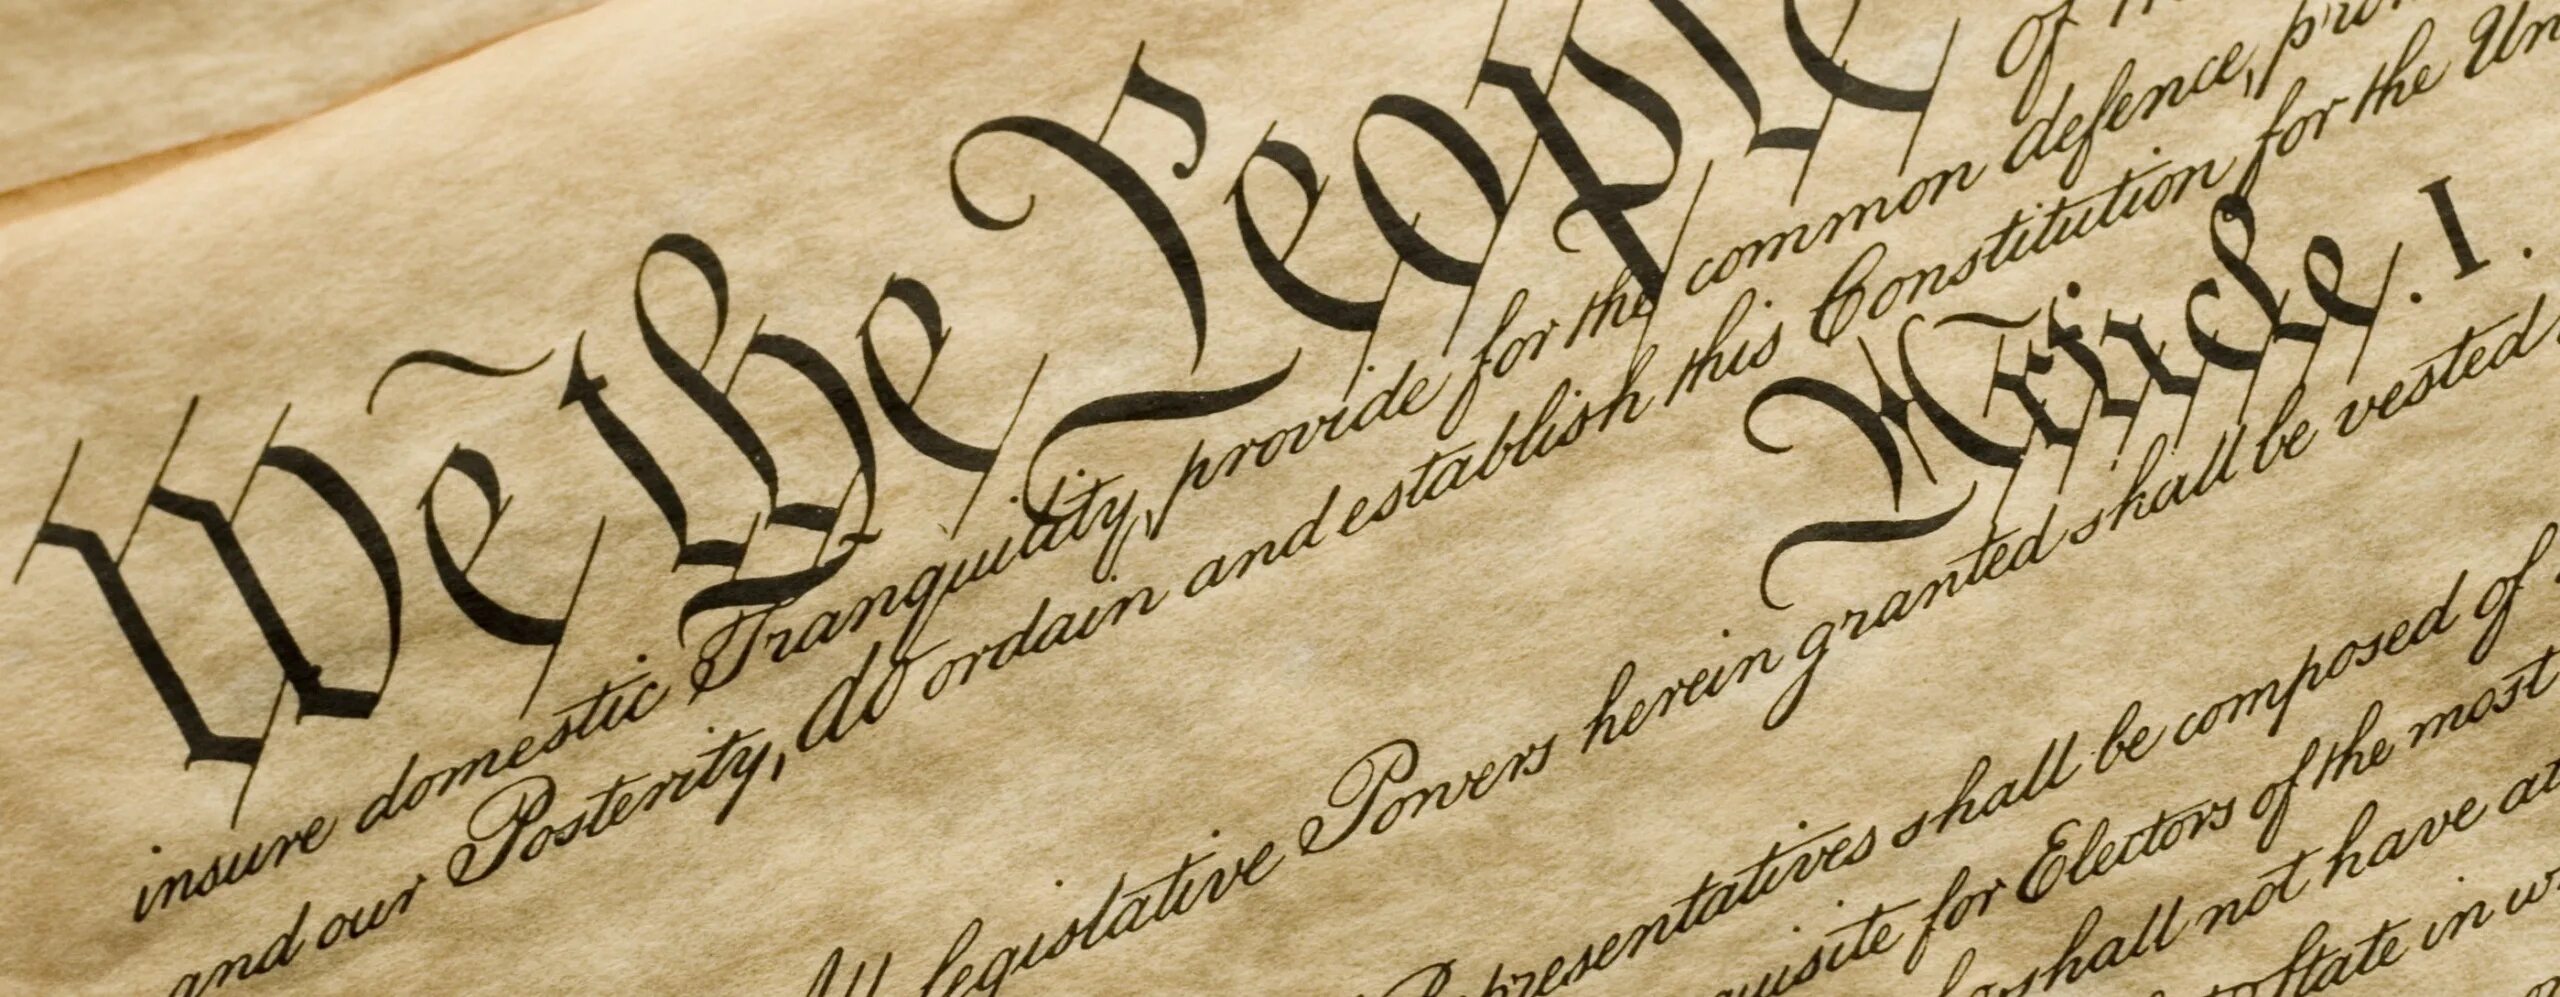 We the People of the
insure domestic Tranquility, provide for the common defence,
and our Posterity, do ordain and establish this Constitution for the
Article. I.
All legislative Powers herein granted shall be vested
shall be composed of
for Electors of the most
shall not have
State in